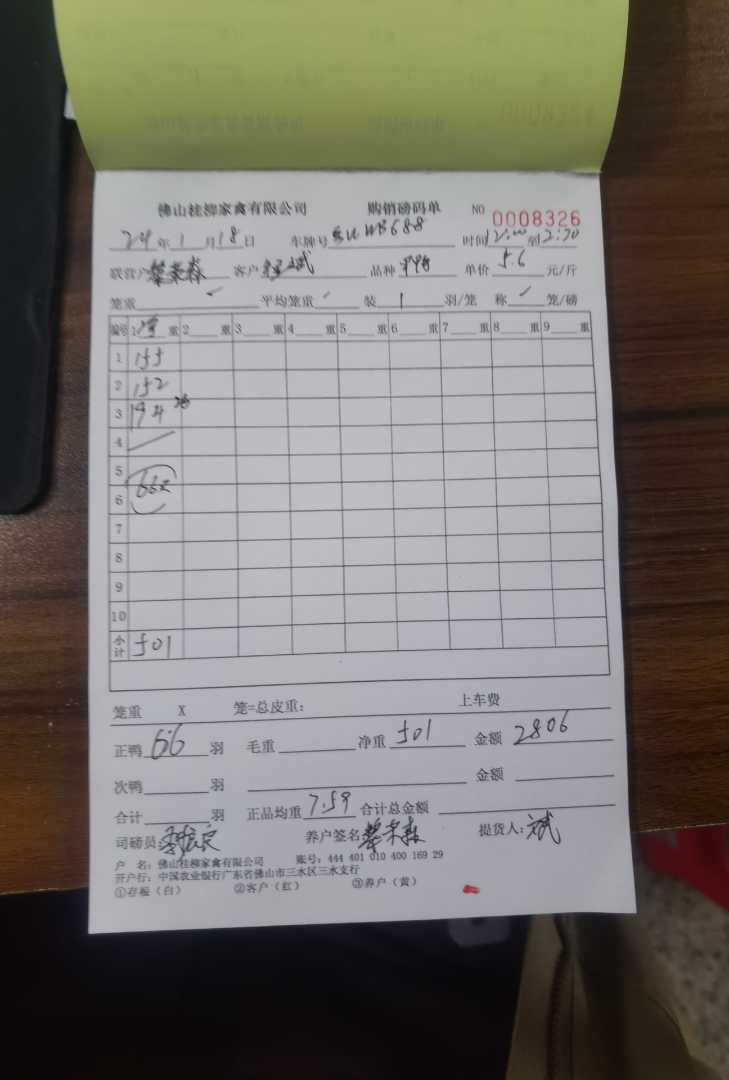 佛山桂柳家禽有限公司 购销磅码单 NO 0008326
24年1月18日 车牌号 时间12:00至12:30
联营户 客户 斌 品种 单价5.6元/斤
笼重 平均笼重 装1羽/笼 称 笼/磅
编号 1 重 2 重 3 重 4 重 5 重 6 重 7 重 8 重 9 重
1 155
2 152
3 194 26
4
5
66只
6
7
8
9
10
小计 501
笼重 X 笼=总皮重: 上车费
正鸭66羽 毛重 净重501 金额2806
次鸭 羽 金额
合计 羽 正品均重7.59 合计总金额
司磅员: 养户签名 提货人: 斌
户 名: 佛山桂柳家禽有限公司 账号: 444 401 010 400 169 29
开户行: 中国农业银行广东省佛山市三水区三水支行
①存根（白） ②客户（红） ③养户（黄）